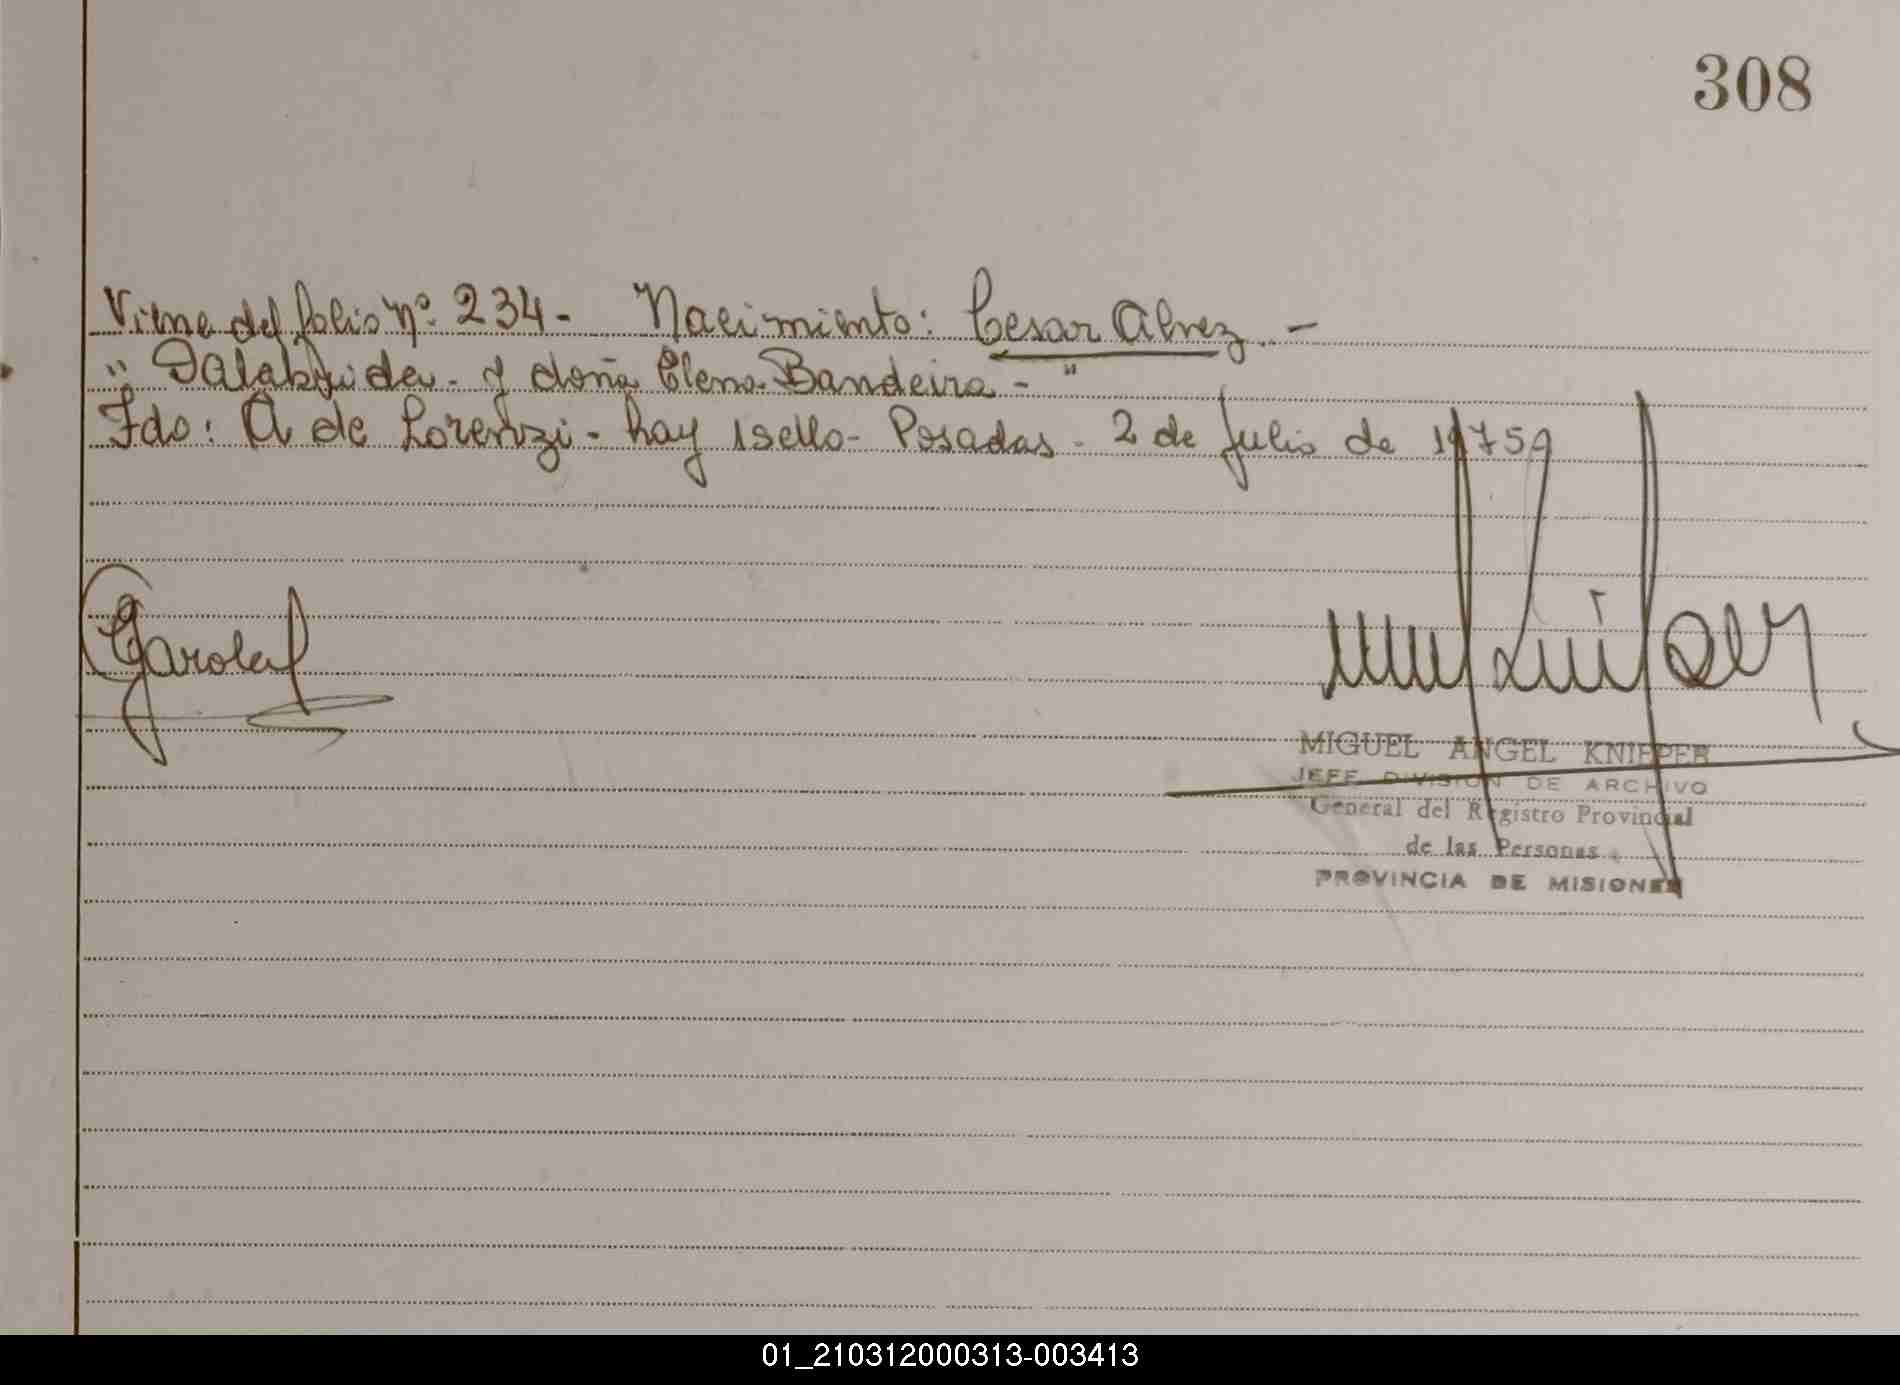 308
Viene del folio nº 234 - Nacimiento: Cesar Alvez. -
" y doña Elena Bandeira - "
Fdo: A de Lorenzi - hay 1 sello - Posadas - 2 de Julio de
Garola
MIGUEL ANGEL KNIEPER
JEFE DIVISION DE ARCHIVO
General del Registro Provincial
de las Personas
PROVINCIA DE MISIONES
01_210312000313-003413